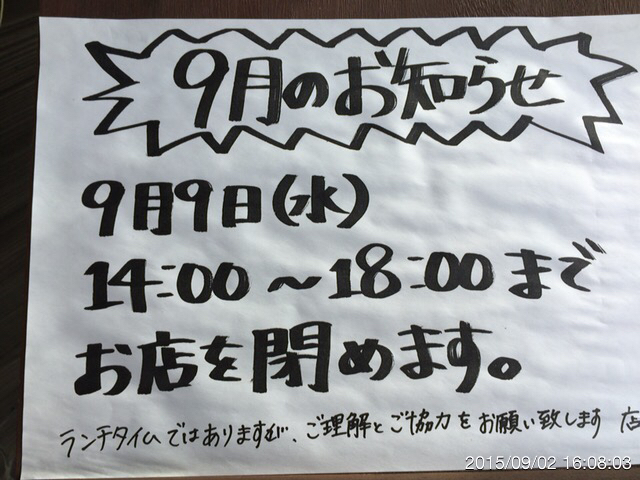 9月のお知らせ
9月9日(水)
14:00～18:00まで
お店を閉めます。
ランチタイムではありますが、ご理解とご協力をお願い致します 店
2015/09/02 16:08:03